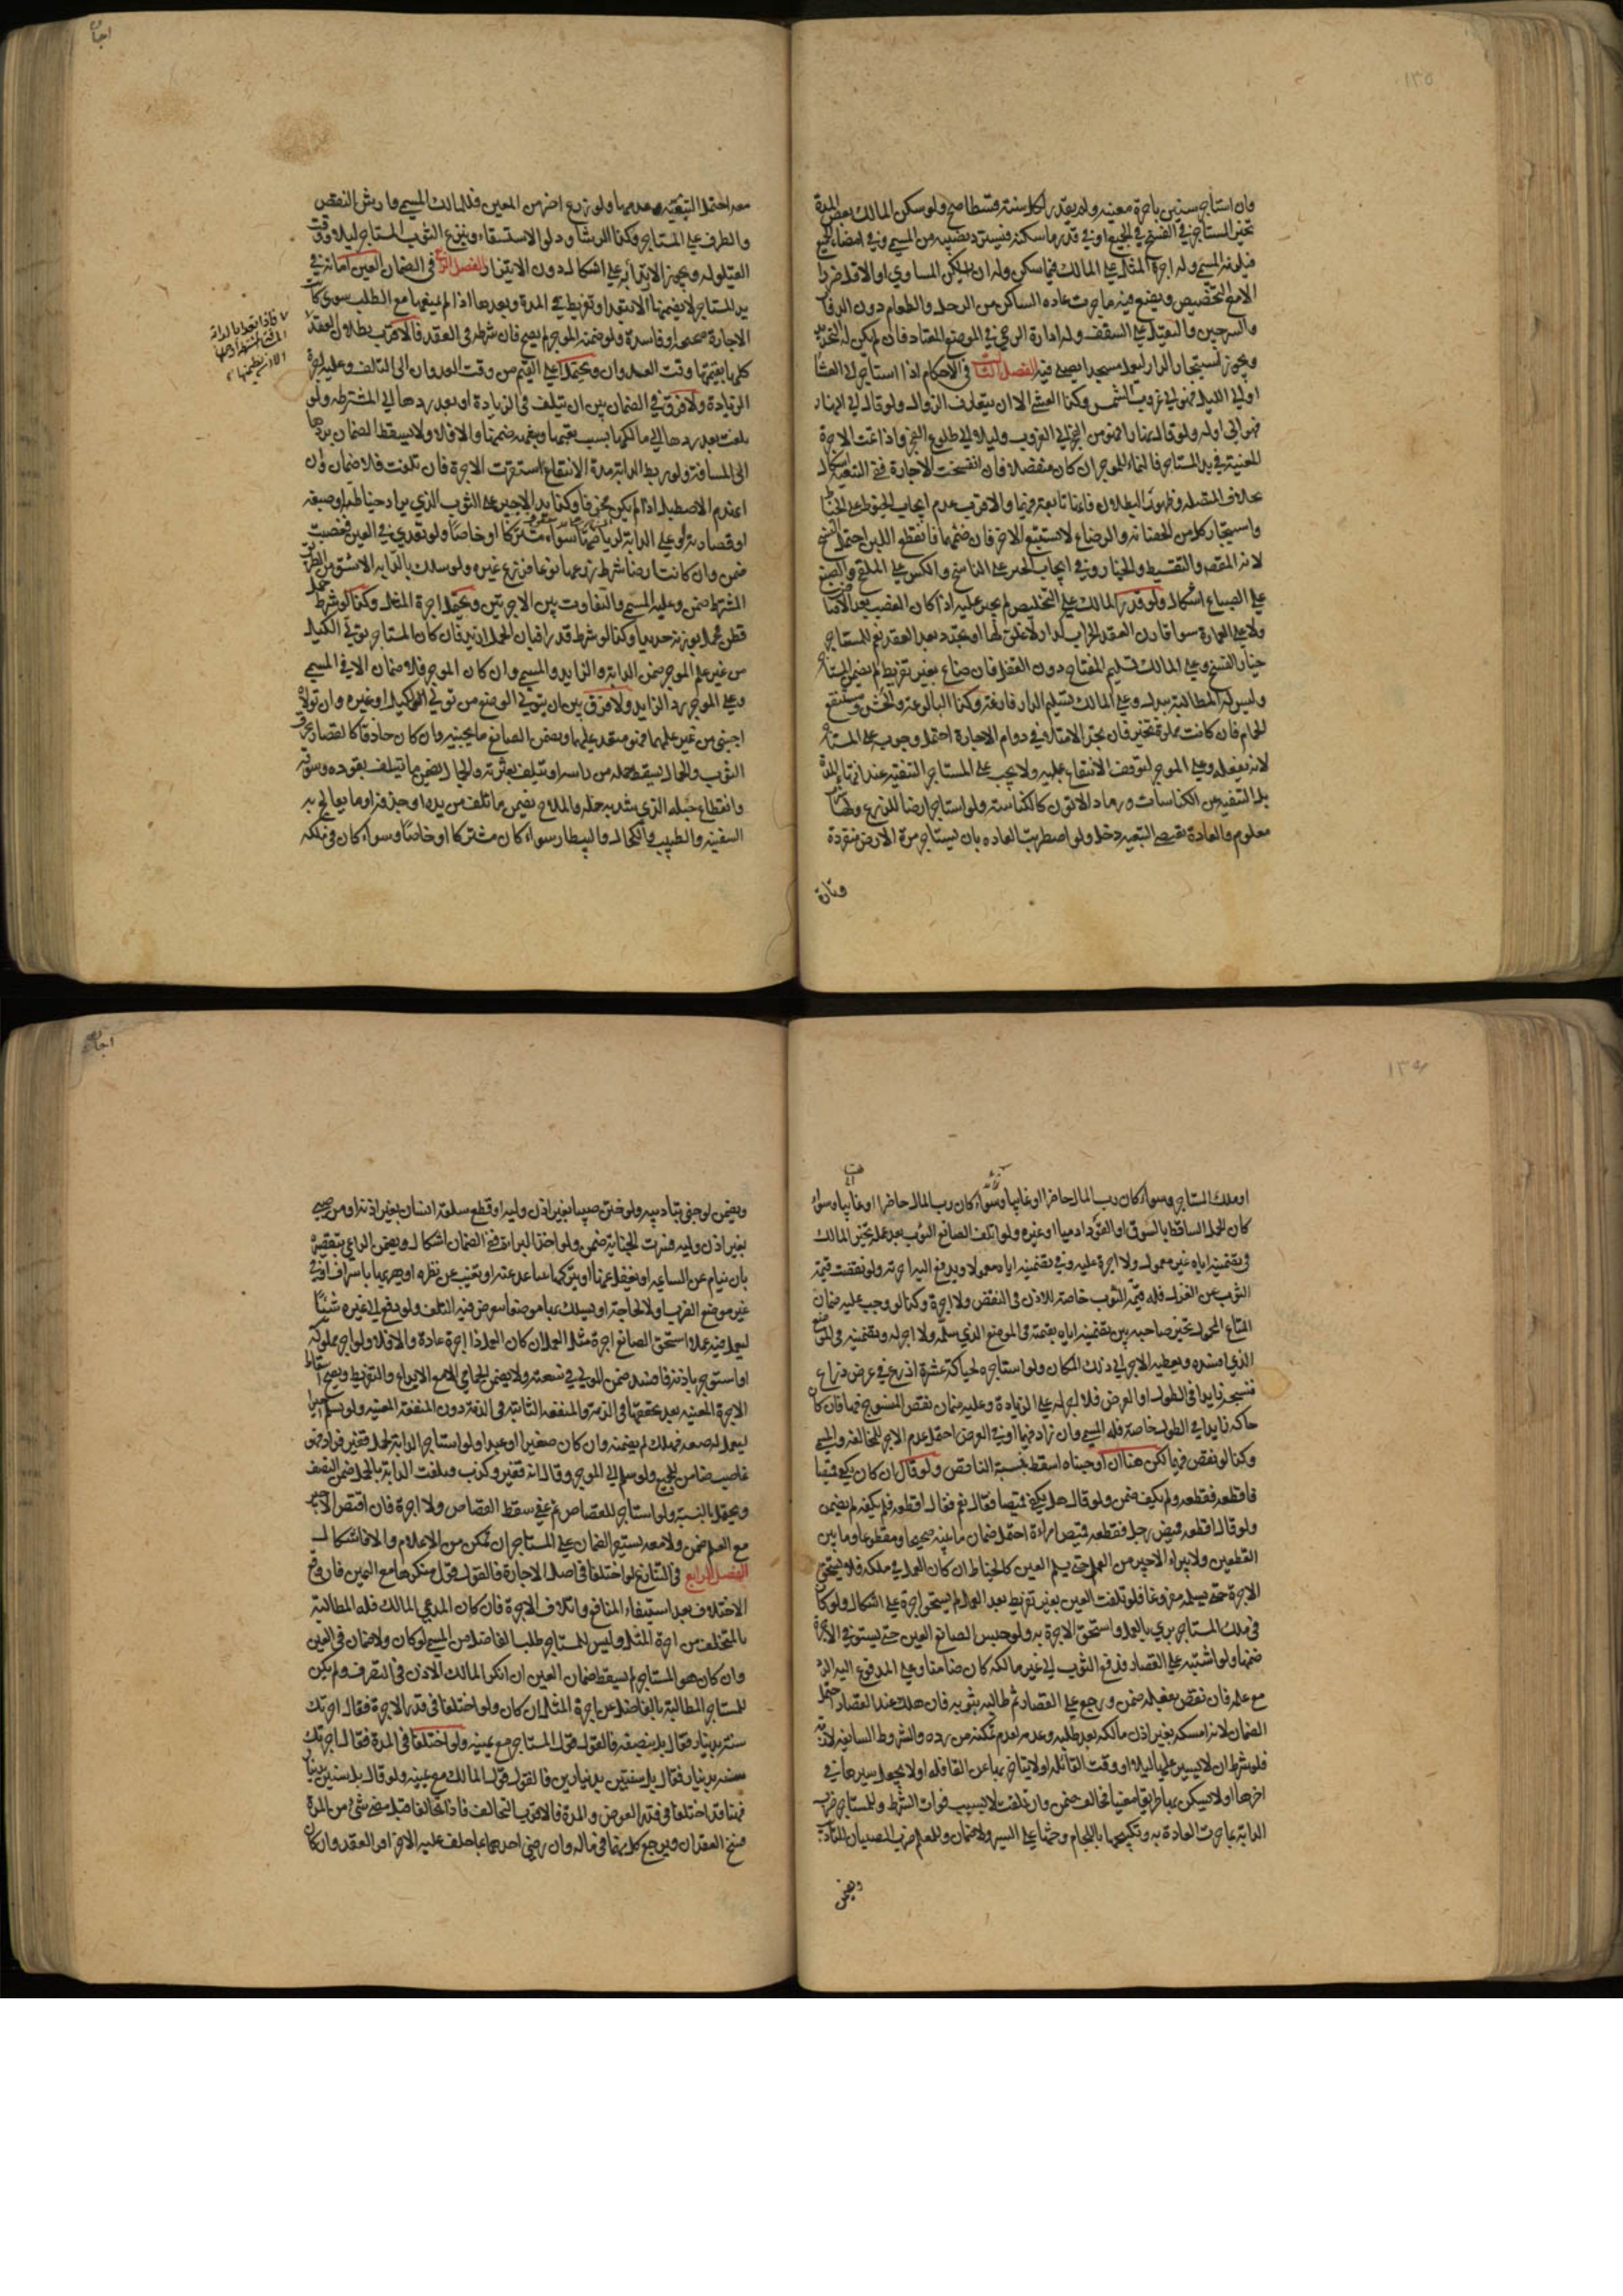 ١٣٥
وان استاجر سنين باجرة معينه ولم يقدر لكل سنة قسطا صح ولو سكن المالك بعض المدة
تخير المستاجر في الفسخ في الجميع او في قدر ما سكنه فيسترد نصيبه من المسمى وفي امضاء الجميع
فيلزمه المسمى وله اجرة المثل على المالك فيما سكن وله ان يسكن المساوي او الاقل ضررا
الا مع التخصيص ويضع فيه ما جرت عادة الساكن من الرحل والطعام دون الدواب
والسرجين والثقيل على السقف وله ادارة الرحى في الموضع المعتاد فان لم يكن له لم يتجدد
ويجوز استيجار الدار ليعمل مسجدا يصلى فيه الفصل الثالث في الاحكام اذا استاجر الى العشا
او الى الليل فهو الى غروب الشمس وكذا العشي الا ان يتعارف الزوال ولو قال الى النهار
فهو الى اوله ولو قال نهارا فهو من الفجر الى الغروب وليلا الى طلوع الفجر واذا نمت الاجرة
المعينة في يد المستاجر فالنماء للموجر ان كان منفصلا فان انفسخت الاجارة ففي التبعية اشكال
بخلاف المتصلة وظهور البطلان فانها تابعة فيهما والاقرب عدم ايجاب الخيوط على الخياط
واستيجار كل من الحضانة والرضاع لا يستتبع الاخر فان ضمهما فانقطع اللبن احتمل الفسخ
لانه المقصود والتقسيط والخيار وفي ايجاب الحبر على الناسخ والكش على الملقح والصبغ
على الصباغ اشكال ولو قدر المالك على التخليص لم يجب عليه اذا كان الغصب بعد الاقباض
ولا على العمارة سوا قارن العقد الخراب كدار لا غلق لها او تجدد بعد العقد نعم للمستاجر
خيار الفسخ وعلى المالك تسليم المفتاح دون القفل فان ضاع بغير تفريط لم يضمن المستاجر
وليس له المطالبة ببدله وعلى المالك تسليم الدار فارغة وكذا البالوعة والحش ومستنقع
الحمام فان كانت مملوة تخير فان تجدد الامتلاء في دوام الاجارة احتمل وجوبه على المستاجر
لانه بفعله وعلى الموجر لتوقف الانتفاع عليه ولا يجب على المستاجر التنقية عند انتهاء المدة
بل التنقية من الكناسات ورماد الاتون كالكناسة ولو استاجر ارضا للزرع ولها شرب
معلوم والعادة تقتضي التبعية دخل ولو اضطربت العادة بان يستاجر مرة الارض منفردة
وتارة
اجاره
معه احتمل التبعية وعدمها ولو زرع اضر من المعين فللمالك المسمى وارش النقص
والظرف على المستاجر وكذا الرشا ودلو الاستسقاء وينزع الثوب المستاجر ليلا ووقت
القيلولة ويجوز الارتداء به على اشكال دون الاتزار الفصل الرابع في الضمان العين امانة في
يد المستاجر لا يضمنها الا بتعد او تفريط في المدة وبعدها اذا لم يمنعها مع الطلب سوى كانت
الاجارة صحيحة او فاسدة ولو ضمنه الموجر لم يصح فان شرطه في العقد فالاقرب بطلان العقد
كلها بقيمتها وقت العدوان ويحتمل اعلى القيم من وقت العدوان الى التلف وعليه اجرة
الزيادة ولا فرق في الضمان بين ان يتلف في الزيادة او بعد ردها الى المشترطة ولو
تلفت بعد ردها الى مالكها بسبب تعبها وغيره ضمنها والا فلا ولا يسقط الضمان بردها
الى المسافة ولو ربط الدابة مدة الانتفاع استقرت الاجرة فان تلفت فلا ضمان وان
انهدم الاصطبل اذا لم يكن مخوفا وكذا يد الاجير على الثوب الذي يراد خياطته او صبغه
او قصارته او على الدابة لرياضتها سواء مشتركا او خاصا ولو تعدى في العين فغصبت
ضمن وان كانت ارضا شرط زرعها نوعا فزرع غيره ولو سلك بالدابة الاشق من الطريق
المشترط ضمن وعليه المسمى والتفاوت بين الاجرتين ويحتمل اجرة المثل وكذا لو شرط حمل
قطن فحمل بوزنه حديدا وكذا لو شرط قدرا فبان الحمل ازيد فان كان المستاجر تولى الكيل
من غير علم الموجر ضمن الدابة والزايد والمسمى وان كان الموجر فلا ضمان الا في المسمى
وعلى الموجر رد الزايد ولا فرق بين ان يتولى الوضع من تولى الكيل او غيره وان تولاه
اجنبي من غير علمهما فهو متعد عليهما ويضمن الصانع ما يجنيه وان كان حاذقا كالقصار يخرق
الثوب والحمال يسقط حمله من راسه او يتلف بعثرته والجمال يضمن ما تيلف بقوده وسوقه
وانقطاع حبله الذي يشد به حمله والملاح يضمن ما تلف من يده او جذفه او ما يعالج به
السفينة والطبيب والكحال والبيطار سواء كان مشتركا او خاصا وسواء كان في ملكه
١٣٦
او ملك المستاجر وسواء كان رب المال حاضرا او غايبا وسواء كان رب المال حاضرا او غايبا وسواء
كان الحمل الساقط بالسوق او القود ادميا او غيره ولو اتلف الصانع الثوب بعد عمله تخير المالك
في تضمينه اياه غير معمول ولا اجرة عليه وفي تضمينه اياه معمولا ويدفع اليه اجرته ولو نقصت قيمة
الثوب عن الغزل فله قيمة الثوب خاصة للاذن في النقص ولا اجرة وكذا لو وجب عليه ضمان
المتاع المحمول تخير صاحبه بين تضمينه اياه بقيمته في الموضع الذي سلمه ولا اجر له وتضمينه في الموضع
الذي افسده ويعطيه الاجر الى ذلك المكان ولو استاجره لحياكة عشرة اذرع في عرض ذراع
فنسجه زايدا في الطول او العرض فلا اجر له على الزيادة وعليه ضمان نقص المنسوج فيها فان كان
حاكه زايدا في الطول خاصة فله المسمى وان زاد فيهما او في العرض احتمل عدم الاجر للمخالفة والمسمى
وكذا لو نقص فيهما لكن هنا ان اوجبناه اسقط بنسبة الناقص ولو قال ان كان يكفي قميصا
فاقطعه فقطعه ولم يكف ضمن ولو قال هل يكفي قميصا فقال نعم فقال اقطعه فلم يكفه لم يضمن
ولو قال اقطعه قميص رجل فقطعه قميص امراءة احتمل ضمان ما بينه صحيحا ومقطوعا وما بين
القطعين ولا يبراء الاجير من العمل حتى يسلم العين كالخياط ان كان العمل في ملكه فلا يستحق
الاجرة حتى يسلمه مفروغا فلو تلفت العين بغير تفريط بعد العمل لم يستحق اجرة على اشكال ولو كان
في ملك المستاجر بري بالعمل واستحق الاجرة به ولو حبس الصانع العين حتى يستوفي الاجرة
ضمنها ولو اشتبه على القصار فدفع الثوب الى غير مالكه كان ضامنا وعلى المدفوع اليه الرد
مع علمه فان نقص بفعله ضمن ورجع على القصار ثم طالبه بثوبه فان هلك عند القصار احتمل
الضمان لانه امسكه بغير اذن مالكه بعد طلبه وعدمه لعدم تمكنه من رده والشروط السايغة لازمة
فلو شرط ان لا يسير عليها ليلا او وقت القائلة او لا يتاخر بها عن القافلة او لا يجعل سيرها في
اخرها او لا يسلك بها طريقا معينا فخالف ضمن وان تلفت لا بسبب فوات الشرط وللمستاجر ضرب
الدابة بما جرت العادة به وتكبيحها باللجام وحثها على السير ولا ضمان وللمعلم ضرب الصبيان للتاديب
ويضمن
اجاره
ويضمن لو جنى بتاديبه ولو ختن صبيا بغير اذن وليه او قطع سلعة انسان بغير اذنه او من صبي
بغير اذن وليه فسرت الجناية ضمن ولو اخذ البراءة ففي الضمان اشكال ويضمن الراعي بتقصيره
بان ينام عن السايمة او يغفل عنها او يتركها تتباعد عنه او تغيب عن نظره او يضربها باسراف او في
غير موضع الضرب او لا لحاجة او يسلك بها موضعا تتعرض فيه للتلف ولو دفع الى غيره شيئا
ليعمل فيه عملا استحق الصانع اجرة مثل العمل ان كان العمل ذا اجرة عادة والا فلا ولو اجر مملوكه
او استوجر باذنه فافسد ضمن المولى في سعيه ولا يضمن الحمامي الا مع الايداع والتفريط ويصح اسقاط
الاجرة المعينة بعد تحققها في الذمة والمنفعة الثابتة في الذمة دون المنفعة المعينة ولو تسلم اجيرا
ليعمل له صنعة فهلك لم يضمنه وان كان صغيرا او عبدا ولو استاجر الدابة لحمل قفيز فزاد فهو
غاصب ضامن للجميع ولو سلم الى الموجر وقال انه قفيز وكذب وتلفت الدابة بالحمل ضمن النصف
ويحتمل بالنسبة ولو استاجر للقصاص ثم عفي سقط القصاص ولا اجرة فان اقتص الاجير
مع العلم ضمن ولا معه يستقر الضمان على المستاجر ان تمكن من الاعلام والا فاشكال
الفصل الرابع في التنازع لو اختلفا في اصل الاجارة فالقول قول منكرها مع اليمين فان وقع
الاختلاف بعد استيفاء المنافع واتلاف الاجرة فان كان المدعي المالك فله المطالبة
بالمتخلف من اجرة المثل وليس للمستاجر طلب الفاضل من المسمى لو كان ولا ضمان في العين
وان كان هو المستاجر لم يسقط ضمان العين ان انكر المالك الاذن في التصرف ولم يكن
للمستاجر المطالبة بالفاضل عن اجرة المثل ان كان ولو اختلفا في قدر الاجرة فقال اجرتك
سنة بدينار فقال بل بنصفه فالقول قول المستاجر مع يمينه ولو اختلفا في المدة فقال اجرتك
سنة بدينار فقال بل سنتين بدينارين فالقول قول المالك مع يمينه ولو قال بل سنتين بدينار
فهنا قد اختلفا في قدر العوض والمدة فالاقرب التحالف فاذا تحالفا قبل مضي شئ من المدة
فسخ العقد ان ويرجع كل منهما في ماله وان رضي احدهما بما حلف عليه الاخر اقر العقد وان كان